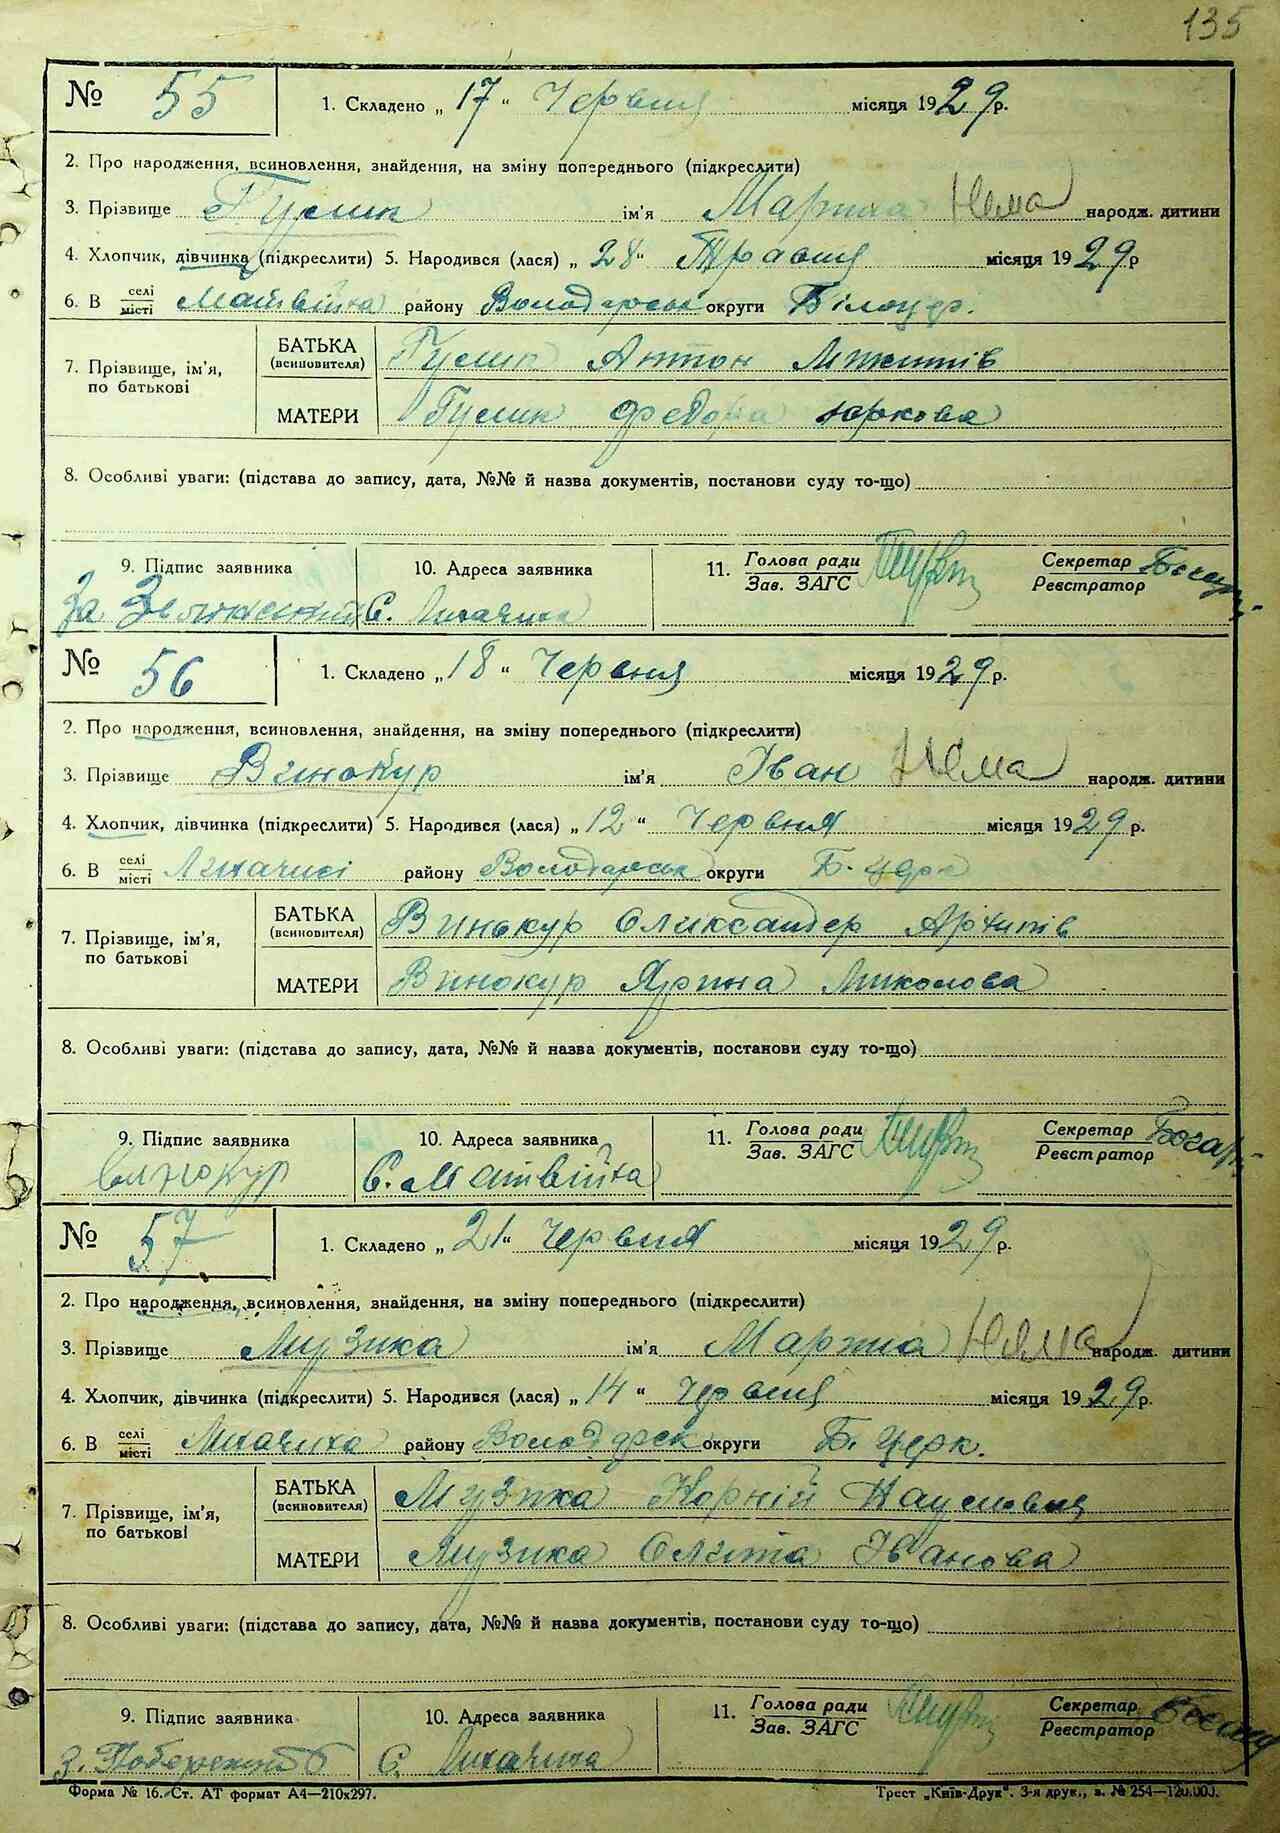 135
№ 55 1. Складено „17“ Червня місяця 1929 р.
2. Про народження, всиновлення, знайдення, на зміну попереднього (підкреслити)
3. Прізвище Гулик ім'я Марина Нема народж. дитини
4. Хлопчик, дівчинка (підкреслити) 5. Народився (лася) „28“ Травня місяця 1929 р
6. В селі місті Матвійха району Володарськ округи Білоцер.
7. Прізвище, ім'я, по батькові
БАТЬКА (всиновителя) Гулик Антон
МАТЕРИ Гулик Федора Юркова
8. Особливі уваги: (підстава до запису, дата, №№ й назва документів, постанови суду то-що)
9. Підпис заявника 10. Адреса заявника 11. Голова ради Зав. ЗАГС Секретар Реєстратор
За С. Лихачиха
№ 56 1. Складено „18“ Червня місяця 1929 р.
2. Про народження, всиновлення, знайдення, на зміну попереднього (підкреслити)
3. Прізвище Винокур ім'я Іван Нема народж. дитини
4. Хлопчик, дівчинка (підкреслити) 5. Народився (лася) „12“ Червня місяця 1929 р.
6. В селі місті Лихачисі району Володарськ округи Б. церк
7. Прізвище, ім'я, по батькові
БАТЬКА (всиновителя) Винокур Олександер Архипів
МАТЕРИ Винокур Ярина Миколова
8. Особливі уваги: (підстава до запису, дата, №№ й назва документів, постанови суду то-що)
9. Підпис заявника 10. Адреса заявника 11. Голова ради Зав. ЗАГС Секретар Реєстратор
Винокур С. Матвійха
№ 57 1. Складено „21“ Червня місяця 1929 р.
2. Про народження, всиновлення, знайдення, на зміну попереднього (підкреслити)
3. Прізвище Музика ім'я Марина Нема народж. дитини
4. Хлопчик, дівчинка (підкреслити) 5. Народився (лася) „14“ Червня місяця 1929 р.
6. В селі місті Лихачиха району Володарск округи Б. церк.
7. Прізвище, ім'я, по батькові
БАТЬКА (всиновителя) Музика Корній Наумовия
МАТЕРИ Музика Олита Іванова
8. Особливі уваги: (підстава до запису, дата, №№ й назва документів, постанови суду то-що)
9. Підпис заявника 10. Адреса заявника 11. Голова ради Зав. ЗАГС Секретар Реєстратор
С. Лихачиха
Форма № 16. Ст. АТ формат А4—210x297. Трест „Київ-Друк“. 3-я друк., з. № 254—120.000.